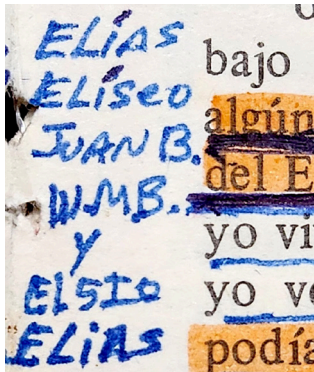 ELÍAS
ELÍSEO
JUAN B.
WMB.
Y
EL 5TO
ELIAS
bajo
algún
del E
yo vi
yo v
podía